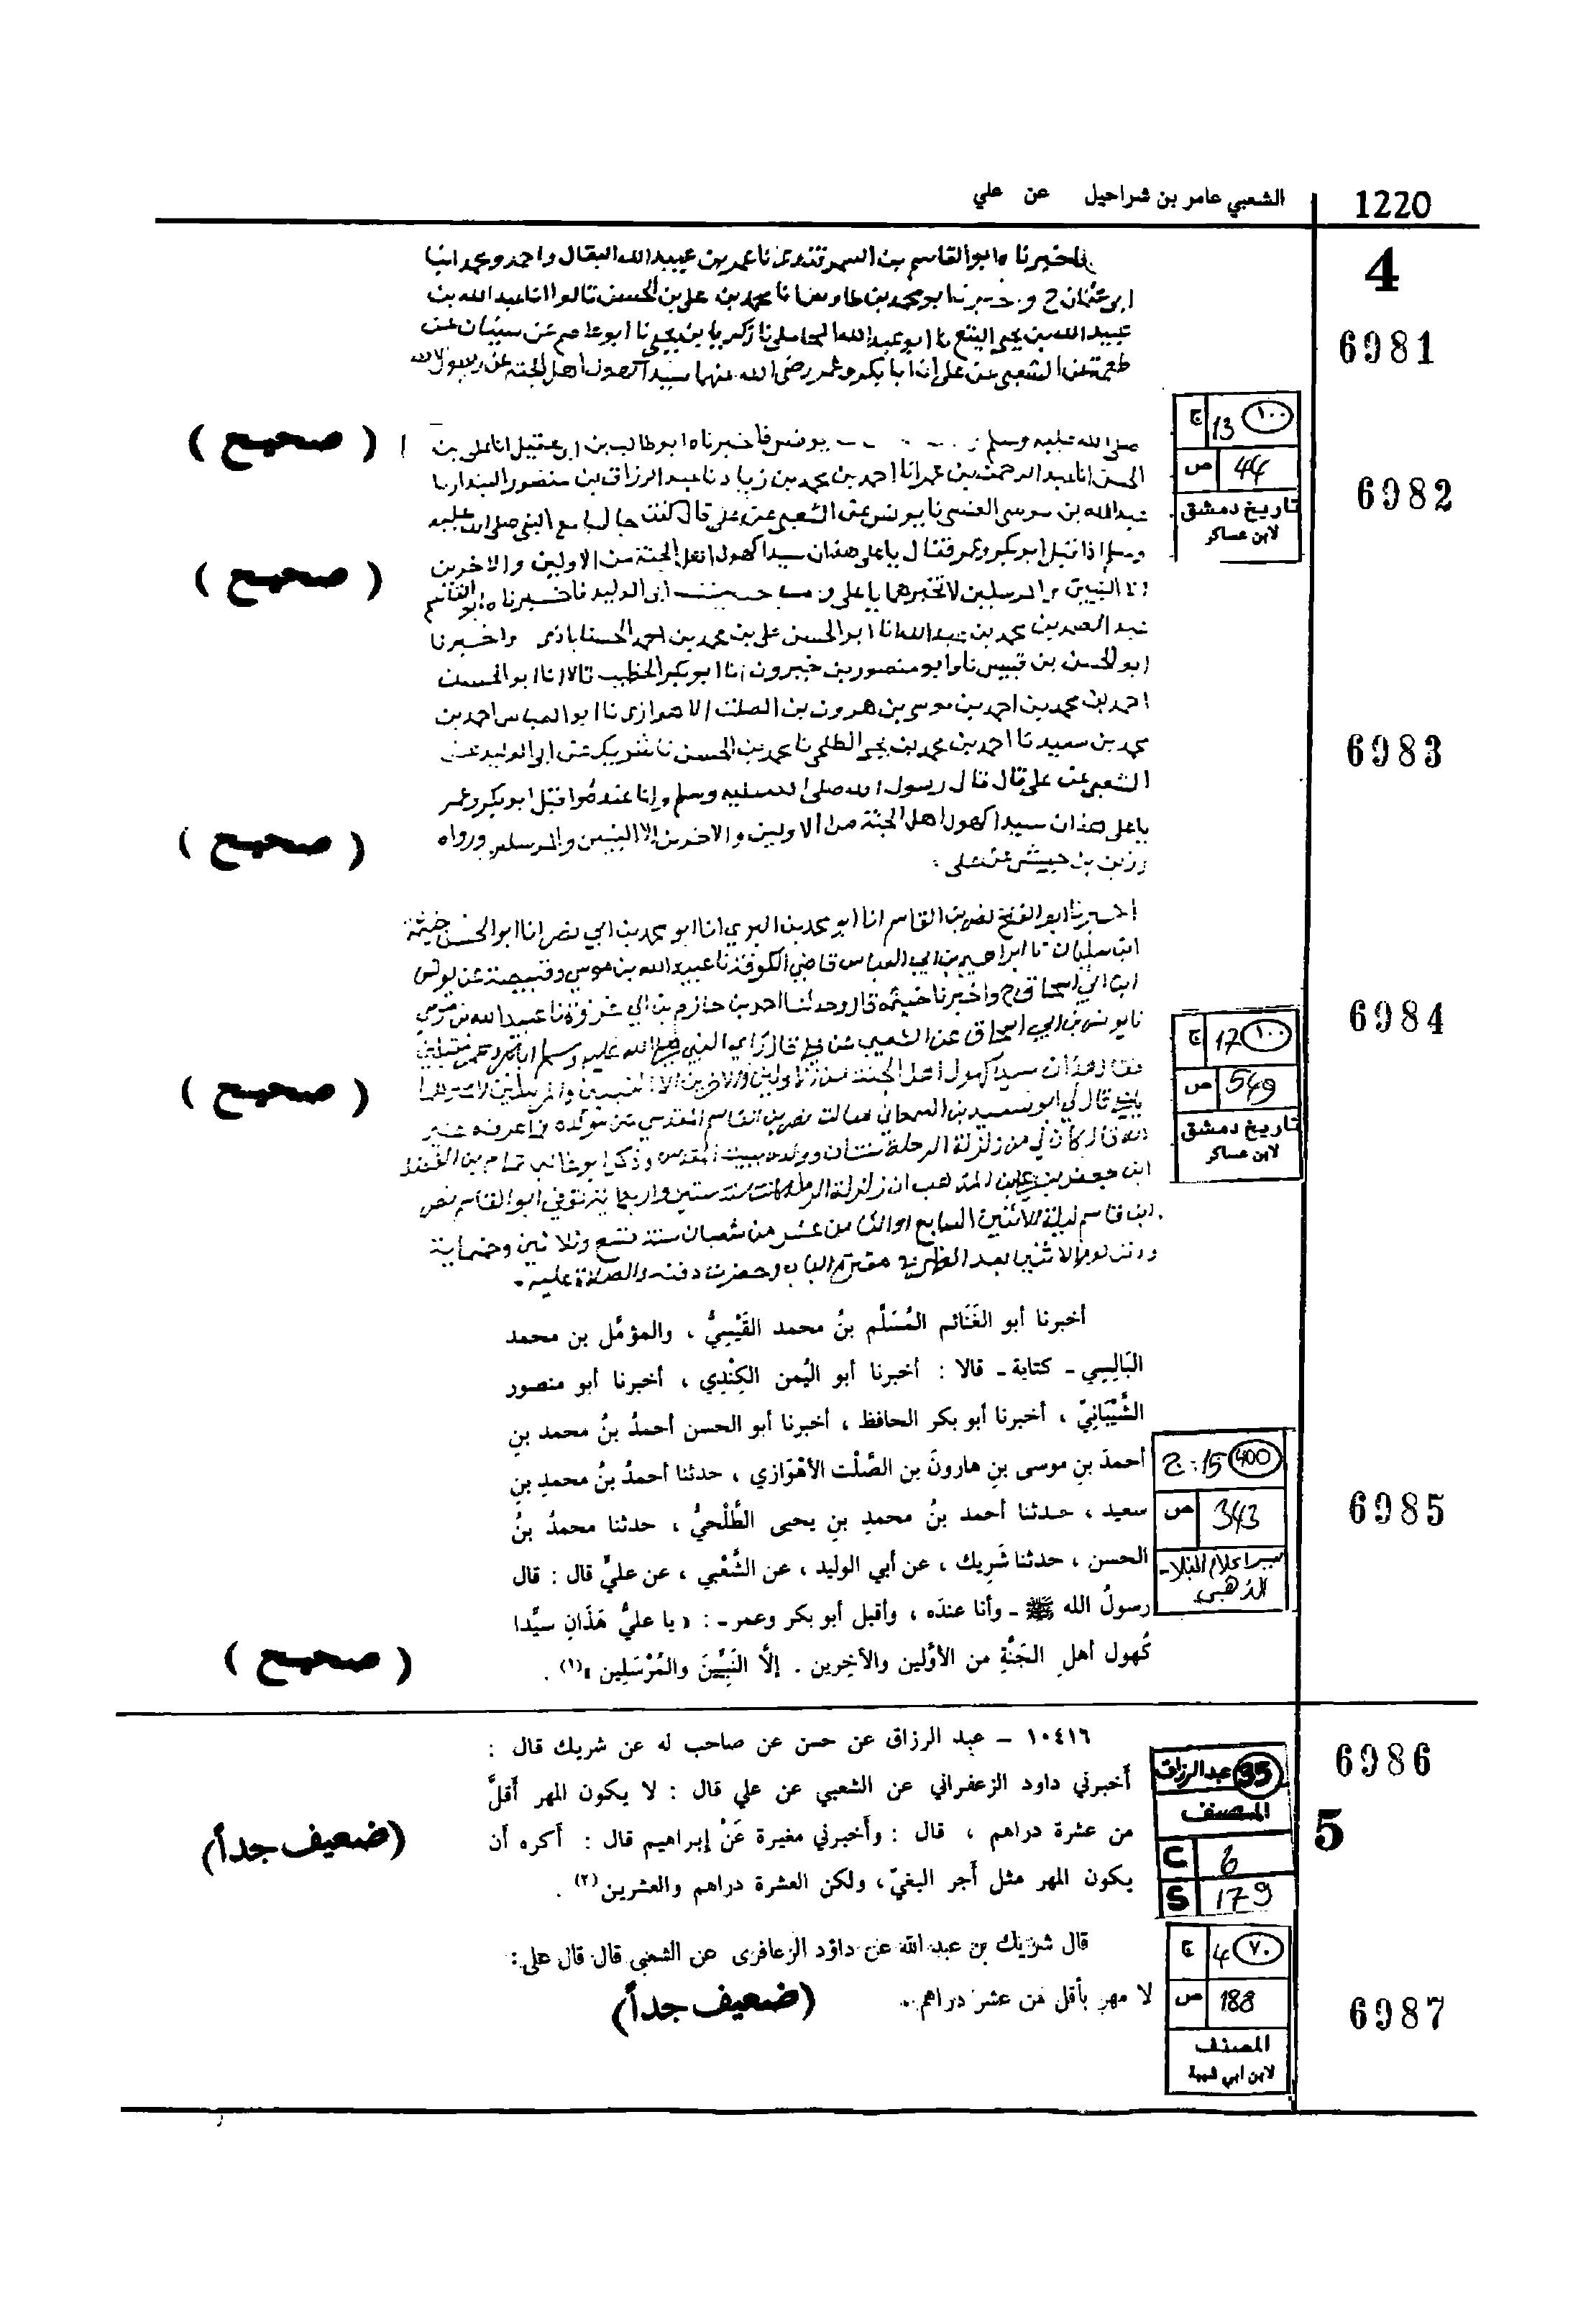 1220
الشعبي عامر بن شراحيل عن علي
4
اخبرنا ابوالقاسم بن السمرقندي نا عمر بن عبيد الله البقال واحمد ومحمد ابنا
ابي عثمان ح و ابو محمد بن طاوس نا محمد بن علي بن الحسن قالوا انا عبد الله بن
6981
عبيد الله بن يحيى البيع نا ابو عبد الله المحاملي نا زكريا بن يحيى نا ابو عاصم عن سفيان عن
عن الشعبي عن علي ان ابا بكر وعمر رضي الله عنهما سيدا كهول اهل الجنة عن رسول الله
صلى الله عليه وسلم يونس فاخبرناه ابو طالب بن ابي عقيل انا علي بن
( صحيح )
13 ج
١٠٠
44 ص
تاريخ دمشق
لابن عساكر
6982
الحسن انا عبد الرحمن بن عمر انا احمد بن محمد بن زياد نا عبد الرزاق بن منصور البندار نا
عبد الله بن موسى العبسي نا يونس عن الشعبي عن علي قال كنت جالسا مع النبي صلى الله عليه
وسلم اذ اقبل ابو بكر وعمر فقال يا علي هذان سيدا كهول اهل الجنة من الاولين والاخرين
الا النبيين والمرسلين لا تخبرهما يا علي حديث ابي الوليد فاخبرناه ابو القاسم
( صحيح )
عبد الصمد بن محمد بن عبد الله انا ابو الحسن علي بن محمد بن احمد الحسناباذي واخبرنا
ابو الحسن بن قبيس نا وابو منصور بن خيرون انا ابو بكر الخطيب قالا انا ابو الحسن
احمد بن محمد بن احمد بن موسى بن هرون بن الصلت الاهوازي نا ابو العباس احمد بن
6983
محمد بن سعيد نا احمد بن محمد بن يحيى الطلحي نا محمد بن الحسن نا شريك عن ابي الوليد عن
الشعبي عن علي قال قال رسول الله صلى الله عليه وسلم وانا عنده واقبل ابو بكر وعمر
يا علي هذان سيدا كهول اهل الجنة من الاولين والاخرين الا النبيين والمرسلين ورواه
زر بن حبيش عن علي .
( صحيح )
اخبرنا ابو الفتح نصر بن القاسم انا ابو محمد بن البري انا ابو محمد بن ابي نصر انا ابو الحسن خيثمة
ابن سليمان نا ابراهيم بن ابي العباس قاضي الكوفة نا عبيد الله بن موسى وقبيصة عن يونس
ابن ابي اسحاق ح واخبرنا خيثمة قال وحدثنا احمد بن حازم بن ابي غرزة نا عبيد الله بن موسى
6984
17 ج
١٠٠
549 ص
تاريخ دمشق
لابن عساكر
نا يونس بن ابي اسحاق عن الشعبي عن علي قال رأى النبي صلى الله عليه وسلم ابا بكر وعمر مقبلين
فقال هذان سيدا كهول اهل الجنة من الاولين والاخرين الا النبيين والمرسلين
( صحيح )
قال لي ابو سعيد بن السمعاني سالت نصر بن القاسم المقدسي عن مولده فما عرفه غير
انه قال كان لي من زلزلة الرملة سنتان وولد ببيت المقدس وذكر ابو غالب
ابن جعفر بن المذهب ان زلزلة الرملة كانت سنة ستين واربعماية توفي ابو القاسم نصر
ابن قاسم ليلة الاثنين السابع او الثامن عشر من شعبان سنة تسع وثلاثين وخمسماية
ودفن يوم الاثنين بعد الظهر مقبرة الباب وحضرت دفنه والصلاة عليه .
أخبرنا أبو الغَنَائم المُسَلَّم بنُ محمد القَيْسِيُّ ، والمؤمَّل بن محمد
البَالِسِي - كتابة - قالا : أخبرنا أبو اليُمن الكِنْدِي ، أخبرنا أبو منصور
الشَّيْبَانِيّ ، أخبرنا أبو بكر الحافظ ، أخبرنا أبو الحسن أحمدُ بنُ محمد بنِ
أحمدَ بنِ موسى بنِ هارونَ بن الصَّلْت الأهْوَازي ، حدثنا أحمدُ بنُ محمدِ بنِ
سعيد ، حدثنا أحمد بنُ محمدِ بنِ يحيى الطَّلْحيُّ ، حدثنا محمدُ بنُ
الحسن ، حدثنا شَرِيك ، عن أبي الوليد ، عن الشَّعْبي ، عن عليٍّ قال : قال
رسولُ الله ﷺ - وأنا عندَه ، وأقبل أبو بكر وعمر - : « يا عليُّ هَذَانِ سيِّدا
كُهول أهلِ الجَنَّةِ من الأوَّلين والآخِرين . إلَّا النَبِيِّينَ والمُرْسَلِين »(١) .
ج: 15
400
343 ص
سير اعلام النبلاء-
الذهبي
6985
( صحيح )
١٠٤١٦ – عبد الرزاق عن حسن عن صاحب له عن شريك قال :
أَخبرني داود الزعفراني عن الشعبي عن علي قال : لا يكون المهر أَقلَّ
من عشرة دراهم ، قال : وأَخبرني مغيرة عَنْ إبراهيم قال : أَكره أن
يكون المهر مثل أَجر البغيّ ، ولكن العشرة دراهم والعشرين(٢) .
عبدالرزاق 35
المصنف
C 6
S 179
6986
5
(ضعيف جداً)
قال شريك بن عبد الله عن داؤد الزعافرى عن الشعبى قال قال على :
لا مهر بأقل من عشر دراهم ..
(ضعيف جداً)
4 ج
٧٠
188 ص
المصنف
لابن ابي شيبة
6987